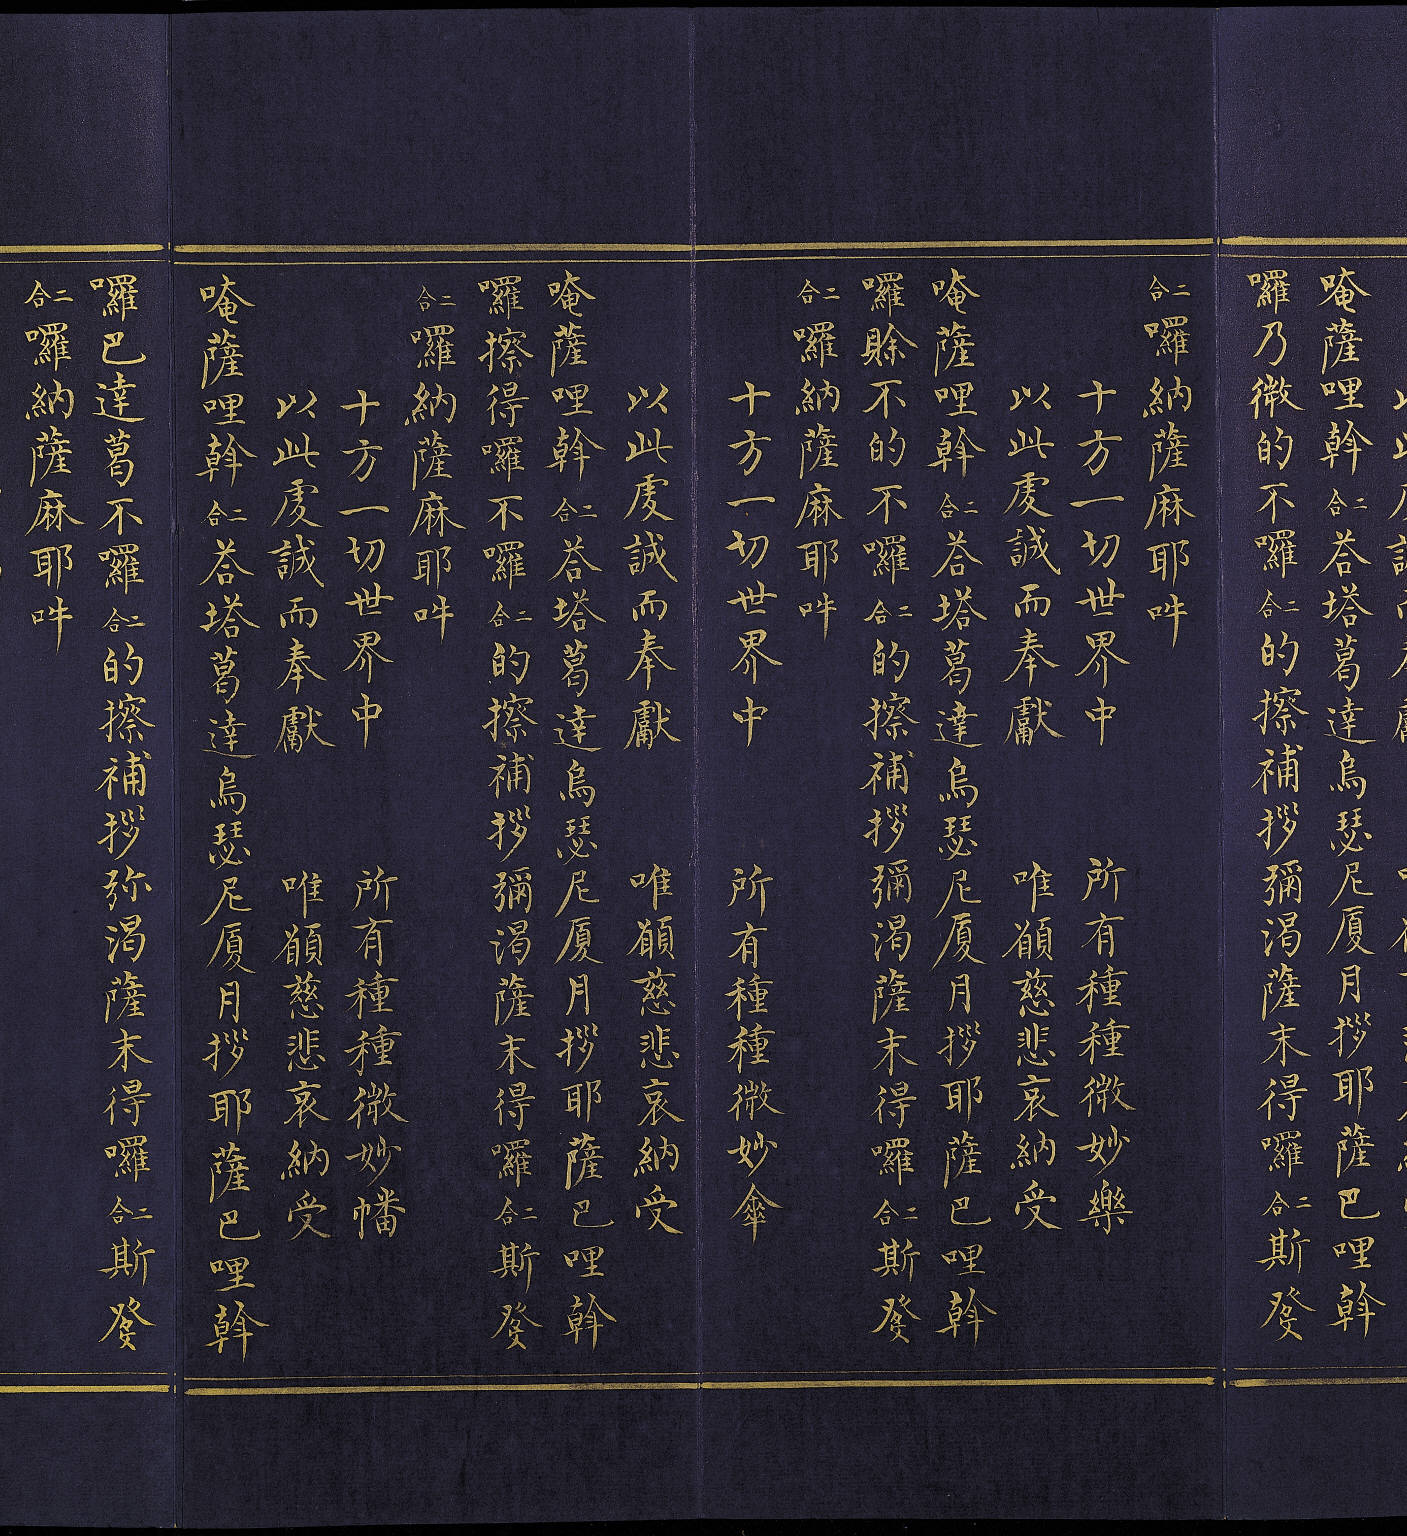 唵薩哩斡二合荅塔葛達烏瑟尼厦月拶耶薩巴哩斡
囉乃微的不囉二合的擦補拶彌渴薩末得囉二合斯發
二合囉納薩麻耶吽
十方一切世界中　所有種種微妙樂
以此虔誠而奉獻　唯願慈悲哀納受
唵薩哩斡二合荅塔葛達烏瑟尼厦月拶耶薩巴哩斡
囉賒不的不囉二合的擦補拶彌渴薩末得囉二合斯發
二合囉納薩麻耶吽
十方一切世界中　所有種種微妙傘
以此虔誠而奉獻　唯願慈悲哀納受
唵薩哩斡二合荅塔葛達烏瑟尼厦月拶耶薩巴哩斡
囉擦得囉不囉二合的擦補拶彌渴薩末得囉二合斯發
二合囉納薩麻耶吽
十方一切世界中　所有種種微妙幡
以此虔誠而奉獻　唯願慈悲哀納受
唵薩哩斡二合荅塔葛達烏瑟尼厦月拶耶薩巴哩斡
囉巴達葛不囉二合的擦補拶弥渴薩末得囉二合斯發
二合囉納薩麻耶吽